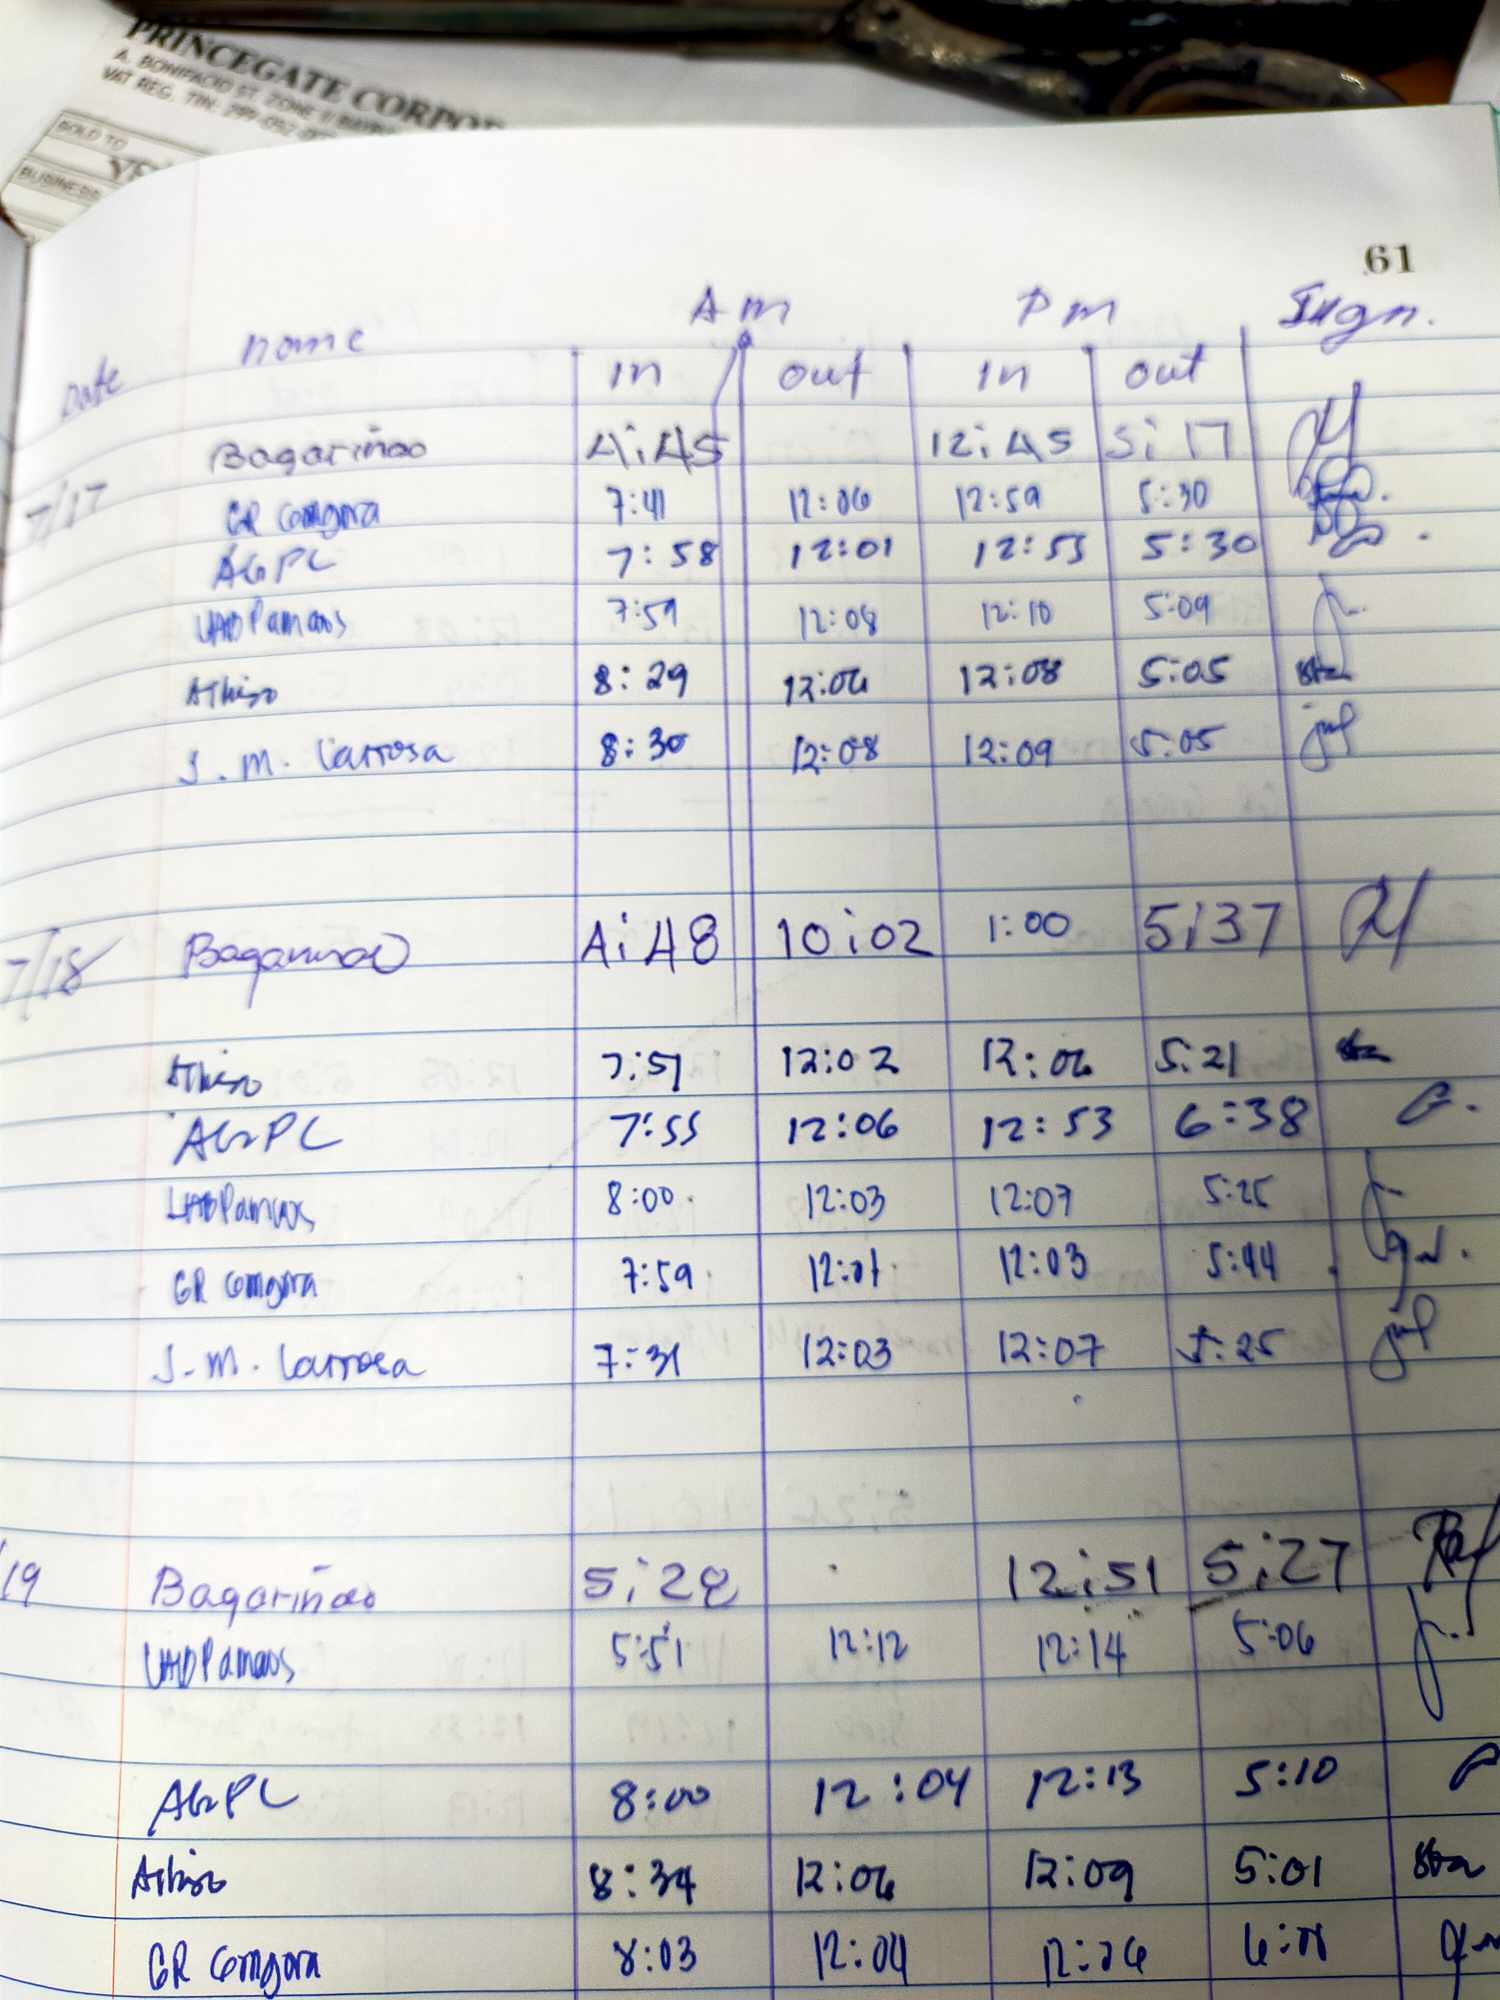 PRINCEGATE CORPOR
A. BONIFACIO ST. ZONE
VAT REG. TIN: 299-092-
SOLD TO
BUSINESS
61
Am Pm Sign.
Date name in out in out
7/17 Bagariñao 4:45 12:45 5:17
GR Gongora 7:41 12:06 12:59 5:30
AGPC 7:58 12:01 12:53 5:30
7:59 12:08 12:10 5:09
8:29 12:06 12:08 5:05
J. M. Larrosa 8:30 12:08 12:09 5:05
7/18 Bagariñao 4:48 10:02 1:00 5:37
7:51 12:02 12:06 5:21
AGPC 7:55 12:06 12:53 6:38
8:00 12:03 12:07 5:25
GR Gongora 7:59 12:01 12:03 5:44
J. M. Larrosa 7:31 12:03 12:07 5:25
/19 Bagariñao 5:28 12:51 5:27
5:51 12:12 12:14 5:06
AGPC 8:00 12:04 12:13 5:10
8:34 12:06 12:09 5:01
GR Gongora 8:03 12:04